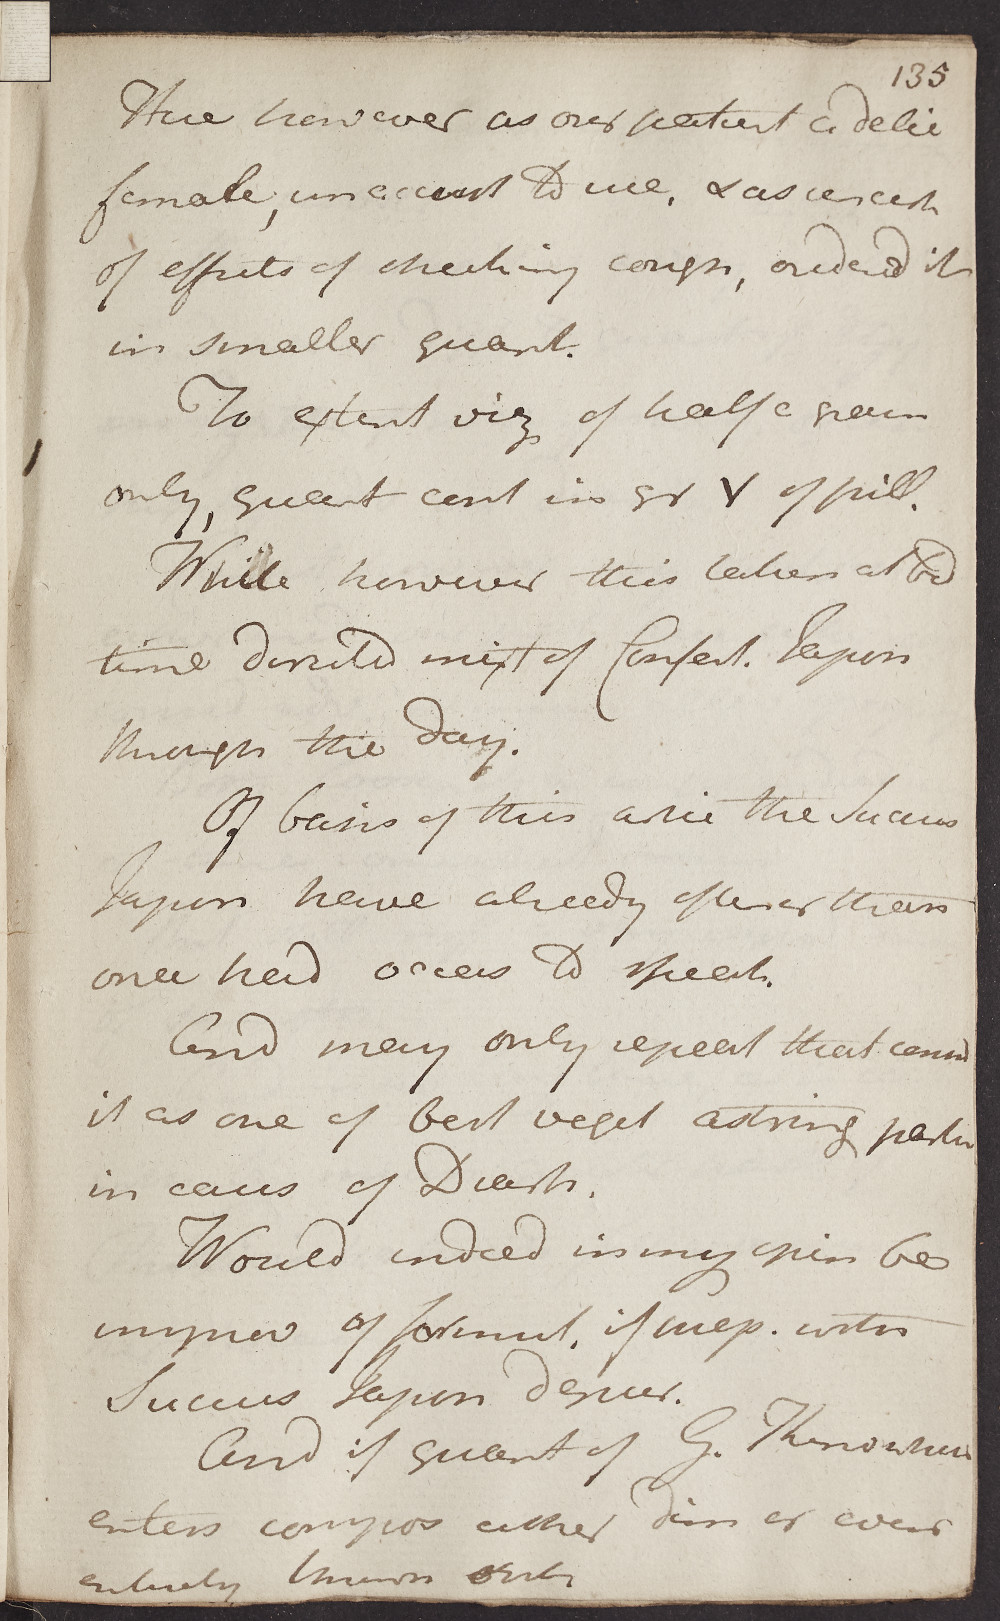 135
Here however as our patient a delic
female, unaccust to use, & as uncert
of effects of checking cough, ordered it
in smaller quant.
To extent viz of half a grain
only, quant cont in gr V of pill.
While however this taken at bed
time directed mixt of Confect. Japon
through the day.
Of basis of this article the Succus
Japon have already oftener than
once had occas to speak.
And may only repeat that consid
it as one of best veget astring partic
in cases of Diarrh.
Would indeed in my opin be
improv of formul, if prep. with
Succus Japon depur.
And if quant of G. Kino which
enters compos either dimin or even
entirely thrown out